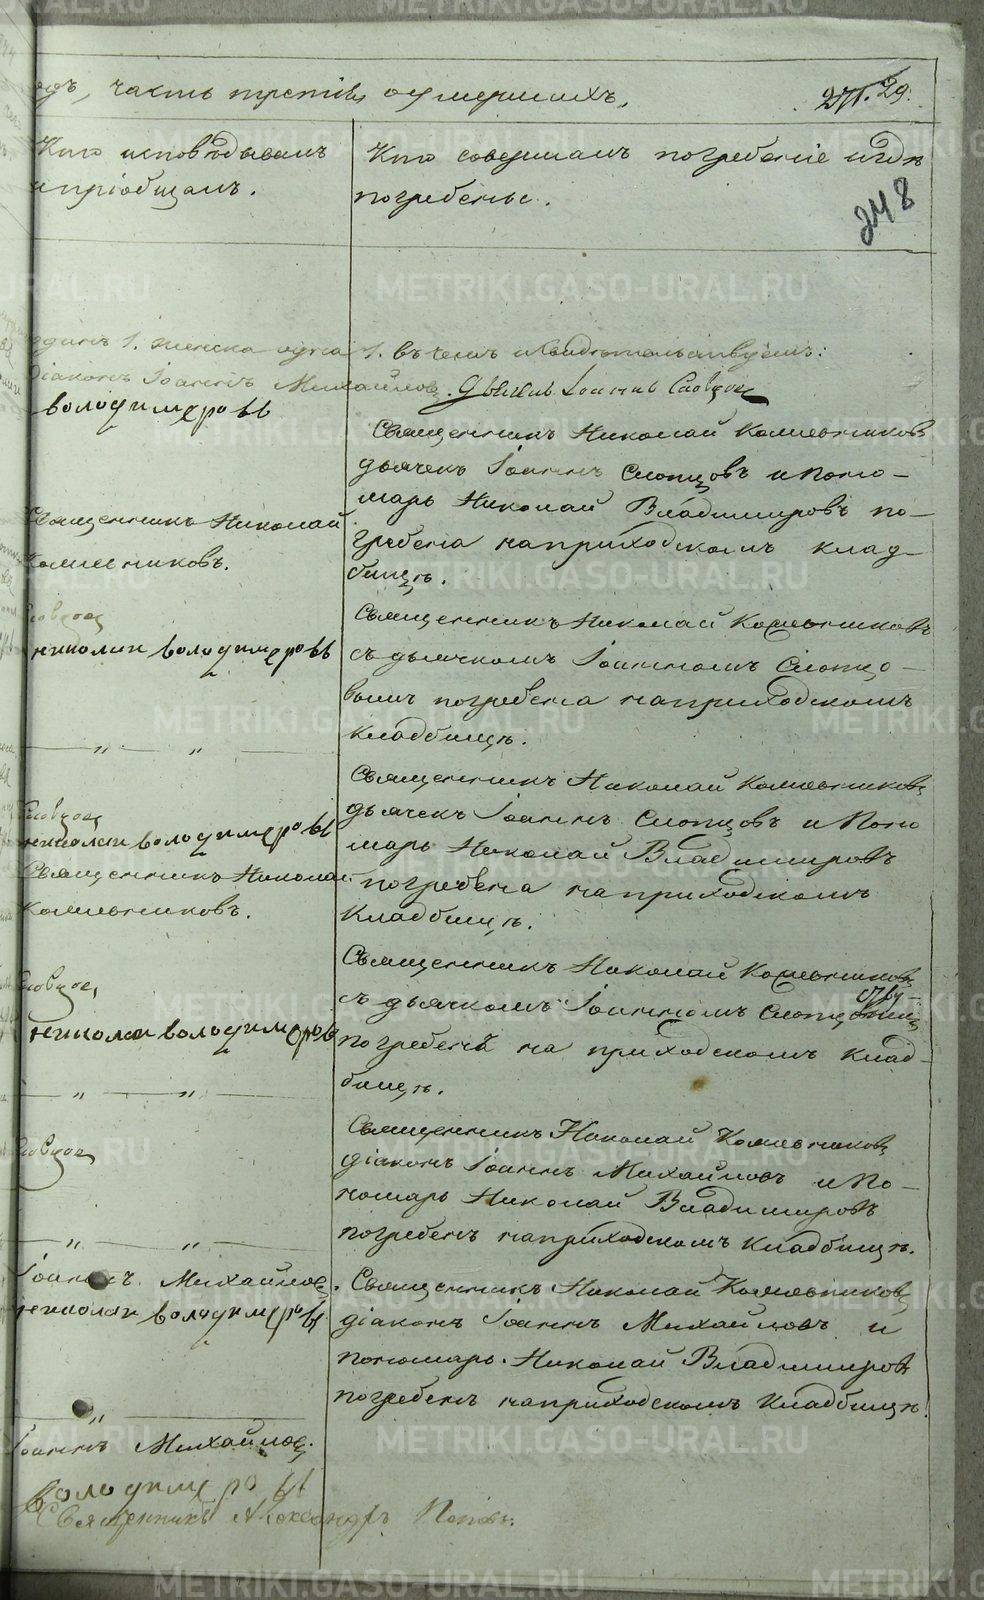 одъ, часть третія, о умершихъ.
271. 29.
248
Кто исповѣдывалъ
и пріобщалъ.
Кто совершалъ погребеніе и гдѣ
погребены.
одинъ 1. женска одна 1. въ чемъ и свидѣтельствуемъ:
діаконъ Іоаннъ Михайловъ. Дьячекъ Іоаннъ Словцов
володимеровъ
Священникъ Николай Колмевниковъ
дьячекъ Іоаннъ Слопцовъ и Поно-
марь Николай Владимировъ по-
гребена на приходскомъ клад-
бищѣ.
Священникъ Николай
Колмевниковъ.
Словцов
николаи володимеровъ
Священникъ Николай Колмевниковъ
съ дьячкомъ Іоанномъ Слопцо-
вымъ погребена на приходскомъ
кладбищѣ.
— " " —
Священникъ Николай Колмевниковъ
дьячекъ Іоаннъ Слопцовъ и Поно
марь Николай Владимировъ
погребена на приходскомъ
Кладбищѣ.
Словцов
николаи володимеровъ
Священникъ Николай
Колмевниковъ.
Священникъ Николай Колмевниковъ
съ дьячкомъ Іоанномъ
погребенъ на приходскомъ клад-
бищѣ.
Словцов
николаи володимеровъ
— " " —
Священникъ Николай Колмевниковъ
діаконъ Іоаннъ Михайловъ и По-
номарь Николай Владимировъ
погребенъ на приходскомъ Кладбищѣ.
Словцов
— " " —
Іоаннъ Михайлов.
николаи володимеровъ
Священникъ Николай Колмевниковъ
діаконъ Іоаннъ Михайловъ и
пономарь Николай Владимировъ
погребенъ на приходскомъ Кладбищѣ.
— " —
Іоаннъ Михайлов.
володимеровъ
Священникъ Александръ Поповъ.
METRIKI.GASO-URAL.RU